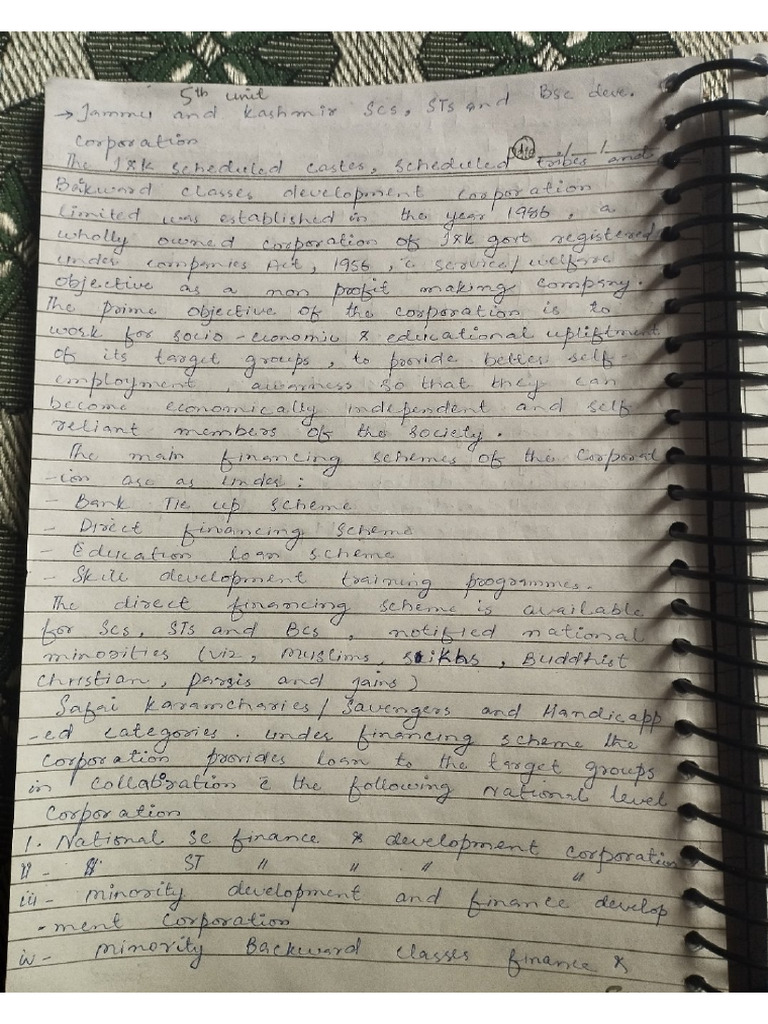 5th unit
→ Jammu and Kashmir Scs, STs and Bsc deve.
corporation
Date
The J&k scheduled castes, scheduled tribes and
Backward classes development corporation
limited was established in the year 1986, a
wholly owned corporation of J&k govt registered
under companies Act, 1956, c̄ service/welfare
objective as a non profit making company.
The prime objective of the corporation is to
work for socio-economic & educational upliftment
of its target groups, to provide better self-
employment, awarness so that they can
become economically independent and self
reliant members of the society.
The main financing schemes of the Corporat
-ion are as under:
- Bank Tie up scheme
- Direct financing scheme
- Education loan scheme
- Skill development training programmes.
The direct financing scheme is available
for Scs, STs and Bcs, notified national
minorities (viz, muslims, sikhs, Buddhist
christian, parsis and jains)
Safai karamcharies/Savengers and Handicapp
-ed categories. under financing scheme the
corporation provides loan to the target groups
in collabration c̄ the following National level
corporation
1. National Sc finance & development corporation
ii - " ST " " " "
iii - minority development and finance develop
-ment corporation
iv - minority Backward classes finance &